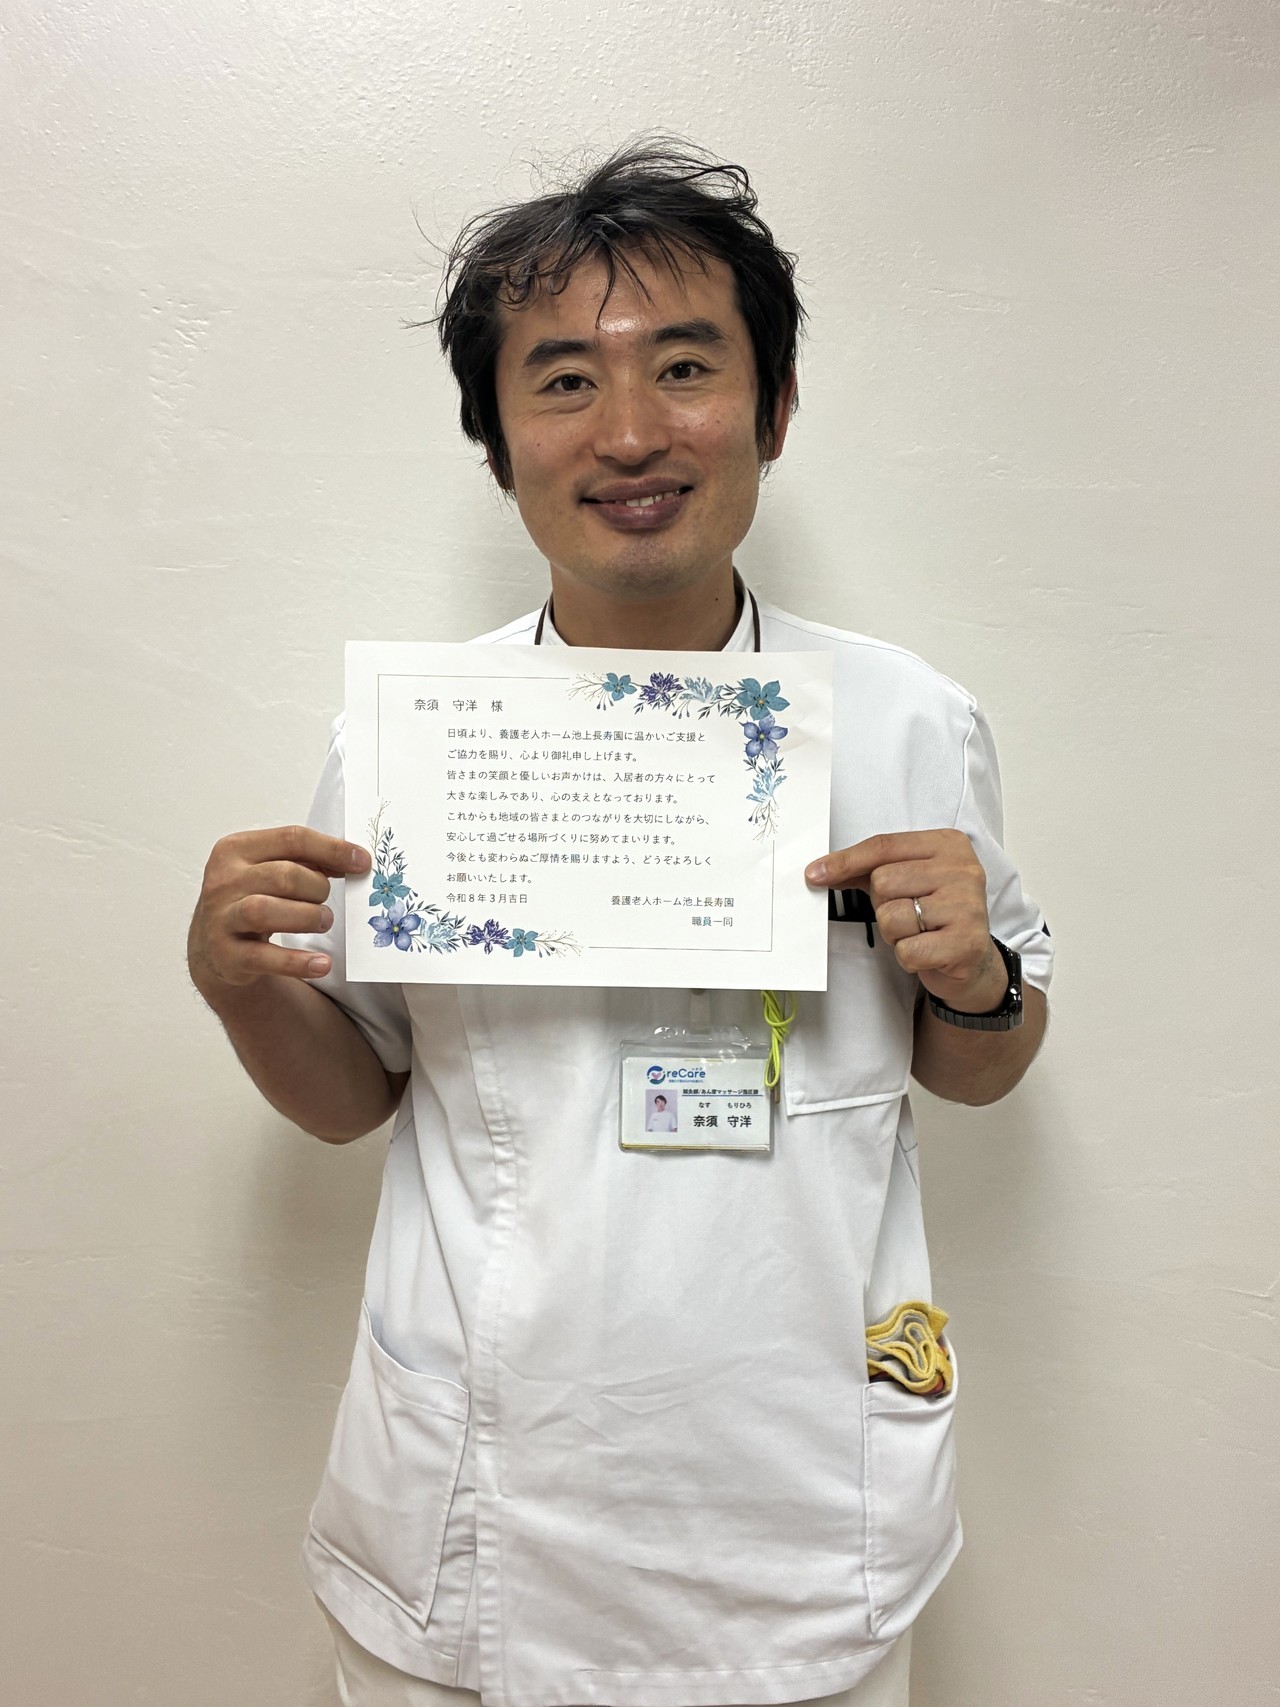 奈須　守洋　様
日頃より、養護老人ホーム池上長寿園に温かいご支援と
ご協力を賜り、心より御礼申し上げます。
皆さまの笑顔と優しいお声かけは、入居者の方々にとって
大きな楽しみであり、心の支えとなっております。
これからも地域の皆さまとのつながりを大切にしながら、
安心して過ごせる場所づくりに努めてまいります。
今後とも変わらぬご厚情を賜りますよう、どうぞよろしく
お願いいたします。
令和８年３月吉日　養護老人ホーム池上長寿園
職員一同
reCare
鍼灸師/あん摩マッサージ指圧師
なす　もりひろ
奈須　守洋